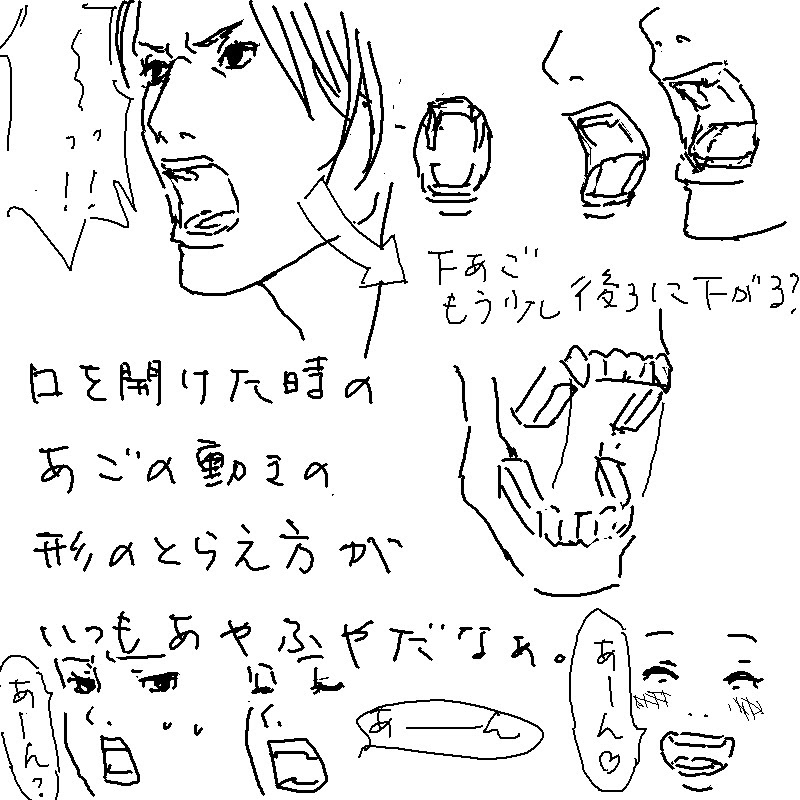 ！！
下あご
もう少し後ろに下がる？
口を開けた時の
あごの動きの
形のとらえ方が
いつもあやふやだなぁ。
あーん？
あーん
あーん♡